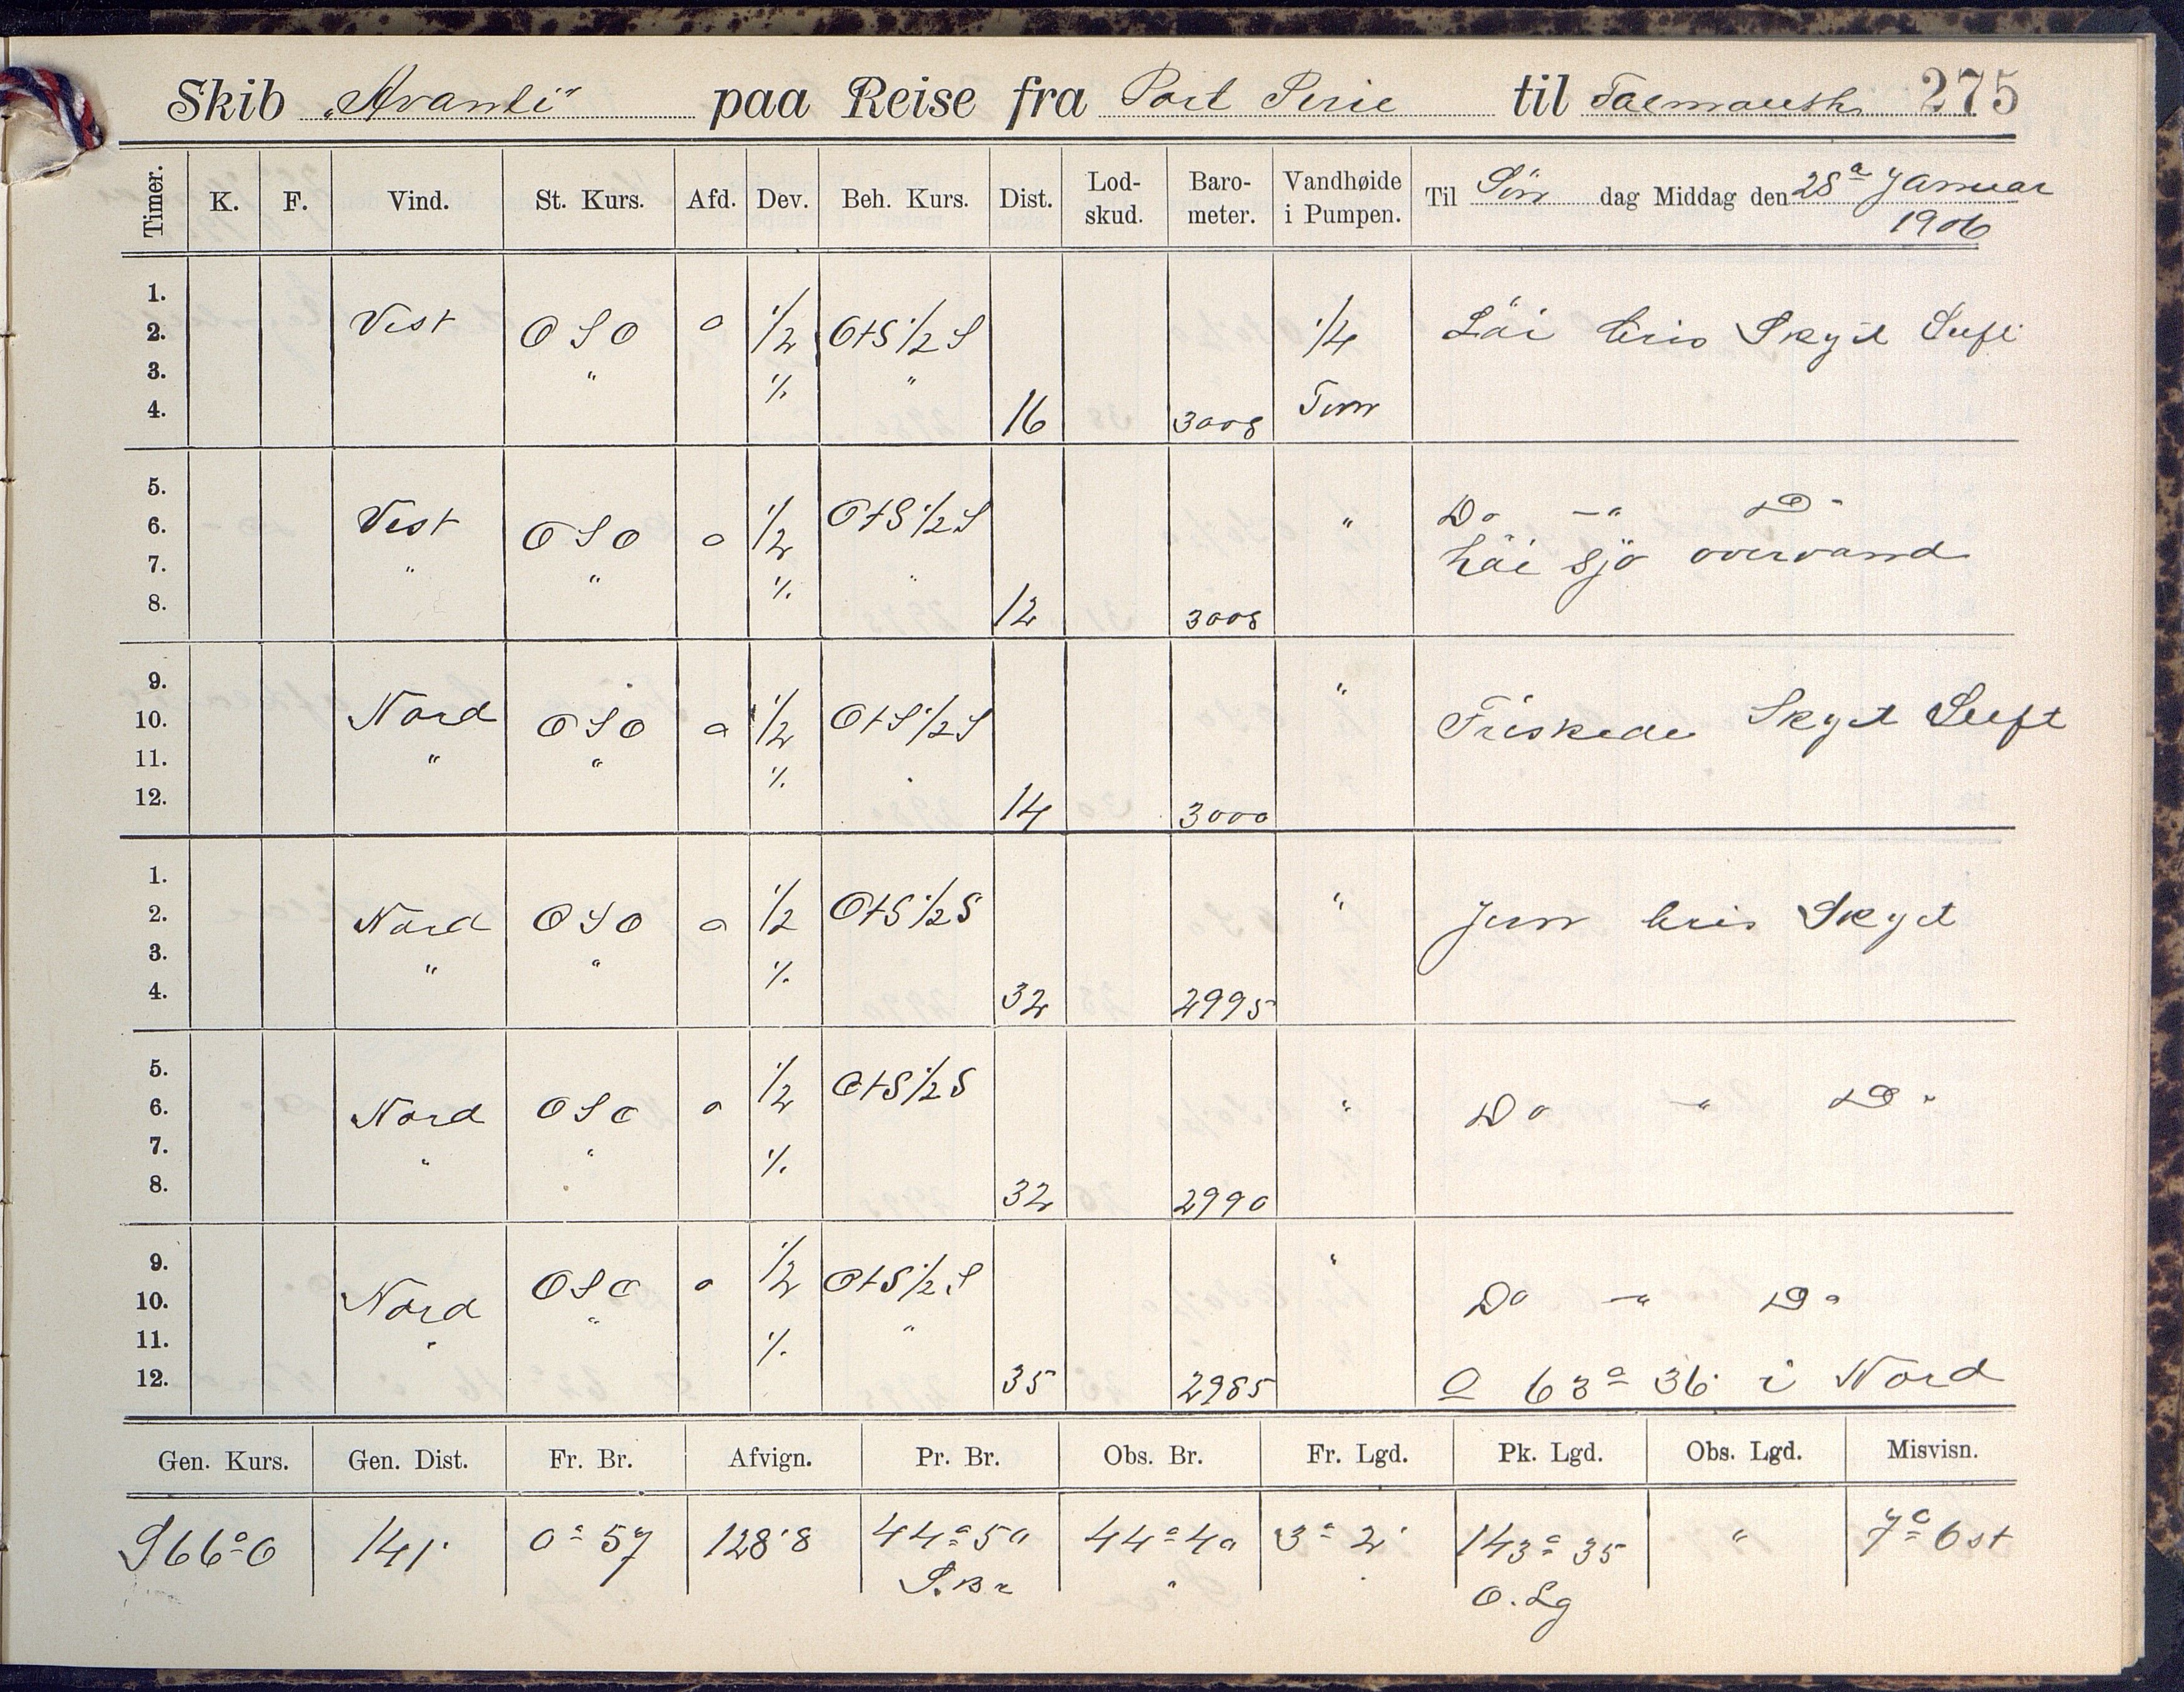 Skib „Avanti" paa Reise fra Port Pirie til Falmouth 275
Timer. K. F. Vind. St. Kurs. Afd. Dev. Beh. Kurs. Dist. Lod-skud. Baro-meter. Vandhøide i Pumpen. Til Søn dag Middag den 28de Januar 1906
1.
2. Vest OSO 0 1/2 OtS 1/2 S 1/4 Løi bris Skyet Luft
3. " % "
4. 16 3008 Tom
5.
6. Vest OSO 0 1/2 OtS 1/2 S " Do -"- Do
7. " " % " høi sjø overvand
8. 12 3008
9.
10. Nord OSO 0 1/2 OtS 1/2 S " Friskede Skyet Luft
11. " " % "
12. 14 3000
1.
2. Nord OSO 0 1/2 OtS 1/2 S " Jevn bris Skyet
3. " " %
4. 32 2995
5.
6. Nord OSO 0 1/2 OtS 1/2 S " Do -"- Do
7. " " %
8. 32 2990
9.
10. Nord OSO 0 1/2 OtS 1/2 S " Do -"- Do
11. " " % "
12. 35 2985 O 63° 36' i Nord
Gen. Kurs. Gen. Dist. Fr. Br. Afvign. Pr. Br. Obs. Br. Fr. Lgd. Pk. Lgd. Obs. Lgd. Misvisn.
S66°O 141' 0° 57 128'8 44° 50 44° 40 3° 2' 143° 35 " 7° Ost
S. Br " O. Lg